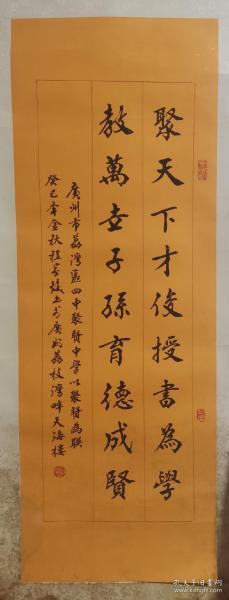 聚天下才俊授書為學
教萬世子孫育德成賢
廣州市荔灣區四中聚賢中學以聚賢為聯
癸巳年金秋程家焌上於廣州荔枝灣畔天海樓
孔夫子旧书网